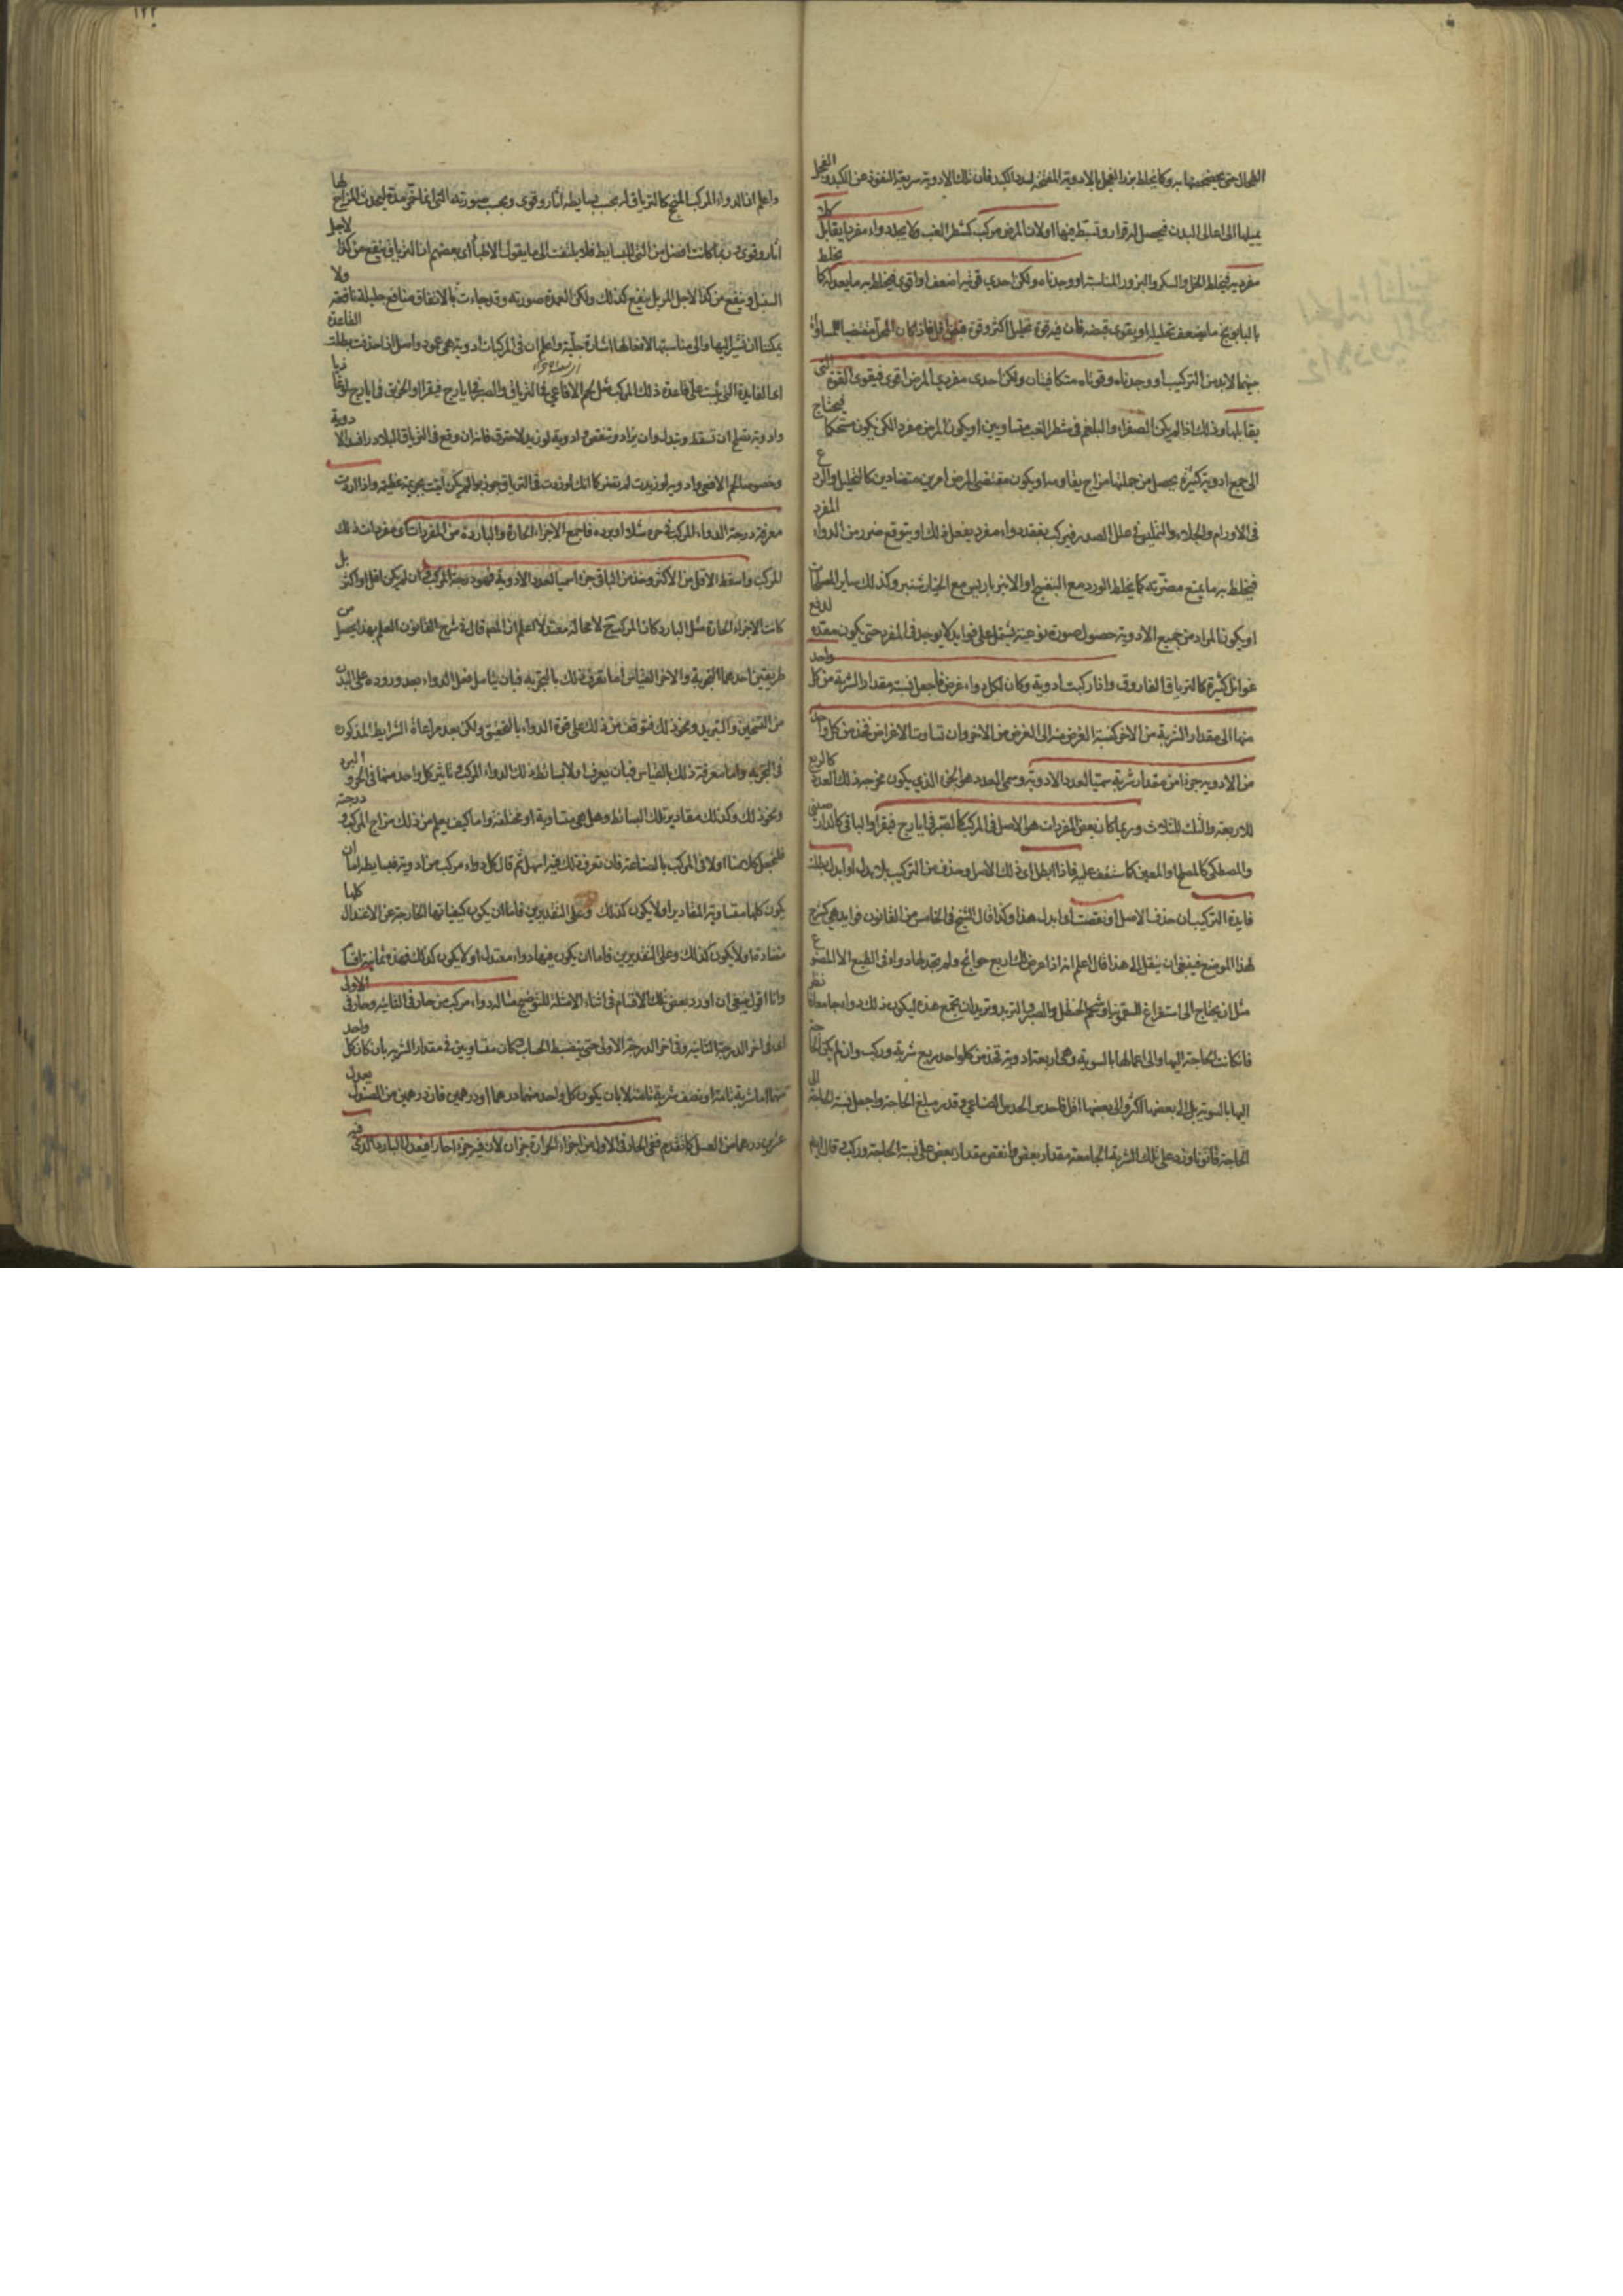 الطحال حتى يجتمعا به وكما يخلط بزر الفجل بالادوية المفتحة لسدد الكبد فان تلك الادوية سريعة النفوذ عن الكبد والفجل
يميلها الى اعالى البدن فيحصل لها قرار وتثبط فيها اولان المرض مركب كشطر الغب ولا يجد دواء مفردا يقابل كلا
مفرديه فيخلط الخل والسكر والبزور المناسبة او وجدناه ولكن احدى قوتيه اضعف او اقوى فيخلط به ما يعدله كما يخلط
بالبابونج ما يضعف تحليله او يقوى قبضه فان فيه قوة تحليل اكثر وقوة قبض اقل فاذا كان المرض مقتضيا للمساواة
بينهما لابد من التركيب او وجدناه وقوتاه متكافيتان ولكن احدى مفردي المرض اقوى فيقوى القوة التى
يقابلها وذلك اذا لم يكن الصفراء والبلغم فى شطر الغب متساويين او يكون المرض مفردا لكن يكون مستحكما فيحتاج
الى جميع ادوية كثيرة يحصل من جملتها مزاج يقاومه او يكون مقتضى المرض امرين متضادين كالتحليل والردع
فى الاورام والجلاء والتمليس فى علل الصدر فيركب بفقد دواء مفرد يفعل ذلك او يتوقع ضرر من الدواء المفرد
فيخلط به ما يمنع مضرته كما يخلط الورد مع البنفسج او الانبرباريس مع الخيارشنبر وكذلك ساير المصلحات
او يكون المراد من جميع الادوية حصول صورة نوعية يشتمل على فوايد كما يوجد فى المفرد حتى يكون معده لدفع
غوائل كثيرة كالترياق الفاروق واذا ركبت ادوية وكان لكل دواء غرض فاجعل نسبة مقدار الشربة من كل واحد
منها الى مقدار الشربة من الاخر كنسبة الغرض منه الى الغرض من الاخر وان تساوت الاغراض فخذ من كل واحد
من الادوية جزءا من مقدار شربته سميا لعدد الادوية وسمى العدد هو الجزء الذي يكون مخرجه ذلك العدد كالربع
للاربعة والثلث للثلاث وربما كان بعض المفردات هو الاصل فى المركب كالصبر فى ايارج فيقرا والباقى كالدارصينى
والمصطكى كالمصلح او المعين كما ستقف عليه فاذا ابطل اى ذلك الاصل وحذف من التركيب بلا بدل او ابدل بطلت
فايدة التركيب ان حذف الاصل او نقصت او ابدل هذا وكذا قال الشيخ فى الخامس من القانون فوايد هى كشرح
لهذا الموضع فينبغى ان ينقل الى هذا قال اعلم انه اذا عرض لك اربع حوائج ولم تجد لها دواء فى الطبع الا المصنوع
مثل ان يحتاج الى استفراغ السقمونيا وشحم الحنظل والصبر والتربد وتريدان تجمع هذه ليكون ذلك دواء جامعا فانظر
فانكانت الحاجة اليها والى اعمالها بالسوية وهى اربعة ادوية تخذ من كل واحد ربع شربة وركب وان لم يكن الحاجة
اليها بالسوية بل الى بعضها اكثر والى بعضها اقل فاحدس الحدس الصناعي وقدر مبلغ الحاجة واجعل نسبة الحاجة الى
الحاجة قانونا وزد على تلك الشربة الجامعة مقدار بعض وانقص مقدار بعض على نسبة الحاجة وركب قال ايضا
١٢٢
واعلم ان الدواء المركب المنجح كالترياق له بحسب بسايطه اثار وقوى وبحسب صورته التى انما تخمر مدة ليحدث المزاج لها
اثار وقوى ربما كانت افضل من التى للبسايط فلا يلتفت الى ما يقول الاطبا اى بعضهم ان الترياق ينفع من كذا لاجل
السنبل وينفع من كذا لاجل المر بل ينفع كذلك ولكن العمدة صورته وقد جاءت بالاتفاق منافع جليلة نافعة ولا
يمكننا ان نشير اليها والى مناسبتها لافعالها اشارة جلية واعلم ان فى المركبات ادوية هى عمود واصل ان حذفت بطلت القاعدة
اى الفايدة التى يثبت على قاعدة ذلك المركب مثل لحم الافاعي فى الترياق والصبر فى ايارج فيقرا والخربق فى ايارج لوغاذيا
وادوية تصلح ان تسقط وتبدل وان يزاد وتنقص وادوية لو زيد لاحترق فانه ان وقع فى الترياق البلاذر افسد الادوية
وخصوصا لحم الافعى وادوية لو زيدت لم تضر كما انك لو زدت فى الترياق جوزبوا لم يكن اتيت بجريمة عظيمة واذا اردت
معرفة درجة الدواء المركب فى حره مثلا او برده فاجمع الاجزاء الحارة والباردة من المفردات اى مفردات ذلك
المركب واسقط الاقل من الاكثر وخذ من الباقى جزءا سميا لعدد الادوية فهو درجة المركب فى ان لم يكن اقل او اكثر بل
كانت الاجزاء الحارة مثل البارد كان المركب ح لا محالة معتدلا اعلم ان المص قال فى شرح القانون العلم بهذا يحصل من
طريقين احدهما التجربة والاخر القياس اما تعرف ذلك بالتجربة فبان يتامل فعل الدواء بعد وروده على البدن
من التسخين والتبريد ونحو ذلك فتوقف من ذلك على قوة الدواء بالتحقيق ولكن بعد مراعاة الشرايط المذكورة
فى التجربة واما معرفة ذلك بالقياس فبان يعرف اولا بسائط ذلك الدواء المركب وتاثير كل واحد منها فى الحر والبرد
ونحو ذلك وكذلك مقادير تلك البسائط وهل هى متساوية او مختلفة واما كيف يعلم من ذلك مزاج المركب ودرجته
فلنجعل كلامنا اولا فى المركب بالصناعة فان تعرف ذلك فيه اسهل ثم قال كل دواء مركب من ادوية فبسايطه اما ان
يكون كلها متساوية المقادير او لا يكون كذلك وعلى التقديرين فاما ان يكون كيفياتها الخارجة عن الاعتدال كلها
متضادة او لا يكون كذلك وعلى التقديرين فاما ان يكون فيها دواء معتدل او لا يكون كذلك فهذه ثمانية اقسام
وانا اقول ينبغى ان اورد بعض تلك الاقسام فى اثناء الامثلة للتوضيح مثاله دواء مركب من حار فى الثانية وحار فى الاولى
اى فى اخر الدرجة الثانية وفى اخر الدرجة الاولى حتى ينضبط الحساب وكان متساويين فى مقدار الشربة بان كان كل واحد
منها اما شربة تامة او نصف شربة تامة لا بان يكون كل واحد منهما درهما او درهمين فان درهمين من الصندل يعدل
عشرين درهما من العسل كما تقدم ففى الحار فى الاولى من اجزاء الحرارة جزءان لان فيه جزءا حارا فيعدل البارد الذي فيه